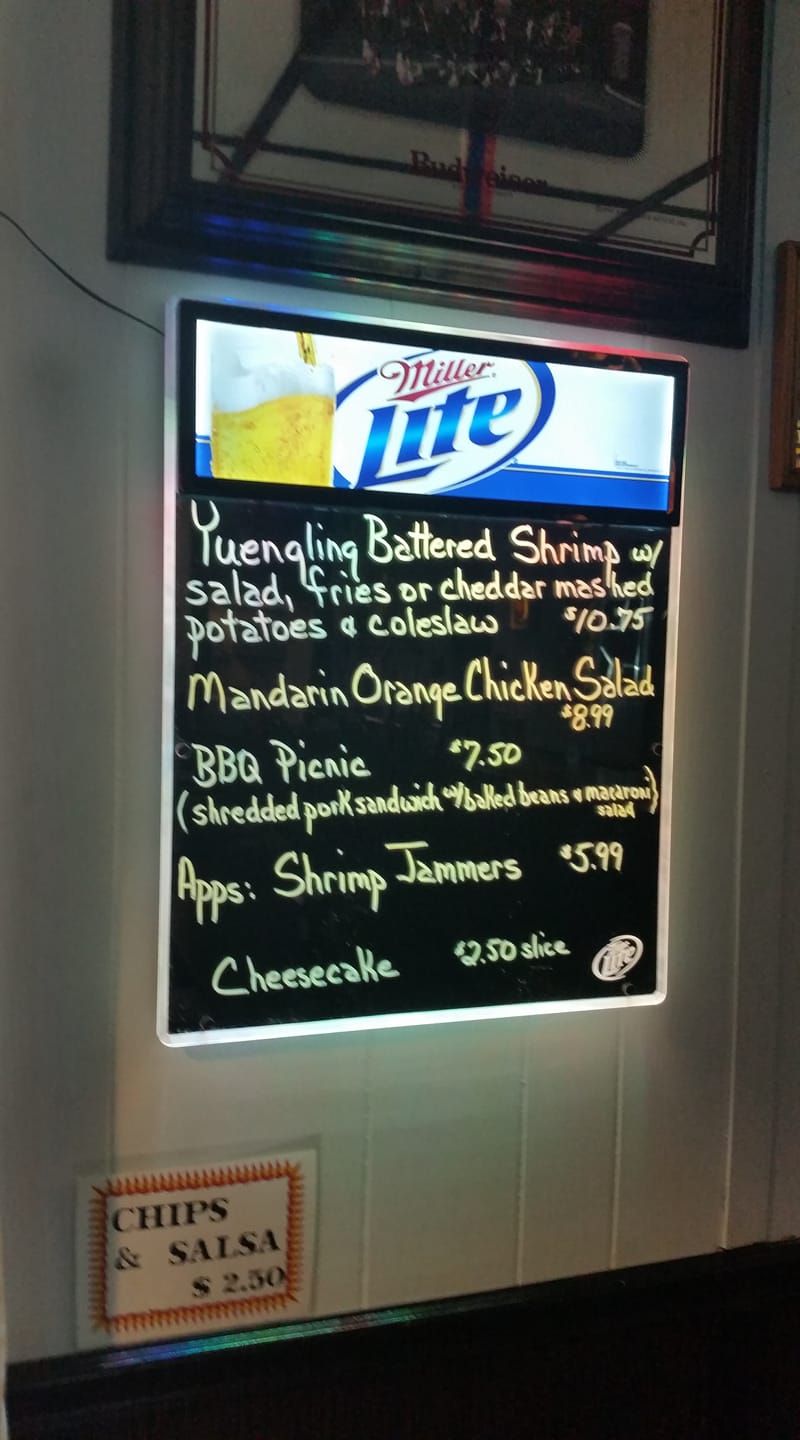 Budweiser
Miller
Lite
Yuengling Battered Shrimp w/
salad, fries or cheddar mashed
potatoes & coleslaw $10.75
Mandarin Orange Chicken Salad
$8.99
BBQ Picnic $7.50
(shredded pork sandwich w/baked beans & macaroni)
salad
Apps: Shrimp Jammers $5.99
Cheesecake $2.50 slice
Lite
CHIPS
& SALSA
$ 2.50